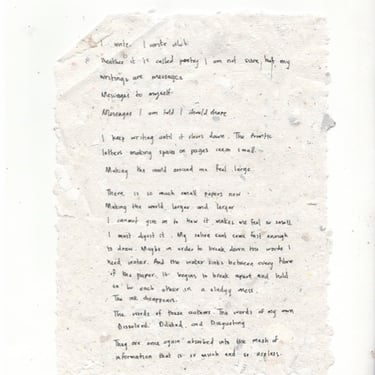 I write. I write alot
Whether it is called poetry I am not sure, but my
writings are messages
Messages to myself
Messages I am told I should share
I keep writing until it slows down. The frantic
letters making spaces on pages seem small.
Making the world around me feel large.
There is so much small papers now
Making the world, larger and larger
I cannot give in to how it makes me feel so small
I must digest it. My saliva cant come fast enough
to drown. Maybe in order to break down the words I
need water. And the water sinks between every fibre
of the paper, it begins to break apart and hold
on to each other in a sludgy mess.
The ink disappears.
The words of those authors. The words of my own
Dissolved. Diluted, and Disgusting
They are once again absorbed into the mesh of
information that is so much and so